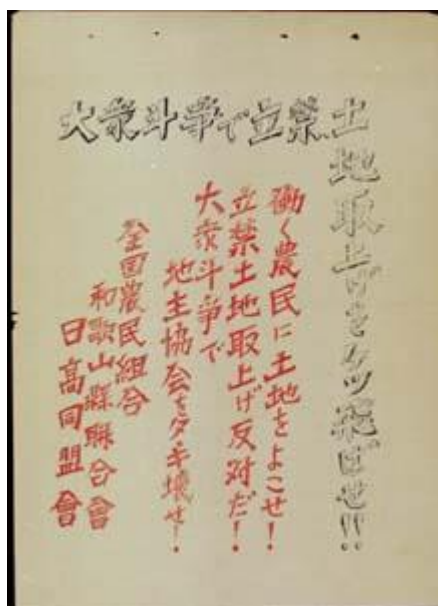 大衆斗争で立禁土
地取上げをケツ飛ばせ!!
働く農民に土地をよこせ!
立禁土地取上げ反対だ!
大衆斗争で
地主協会をタキ壊せ!
全国農民組合
和歌山縣聯合會
日高同盟會